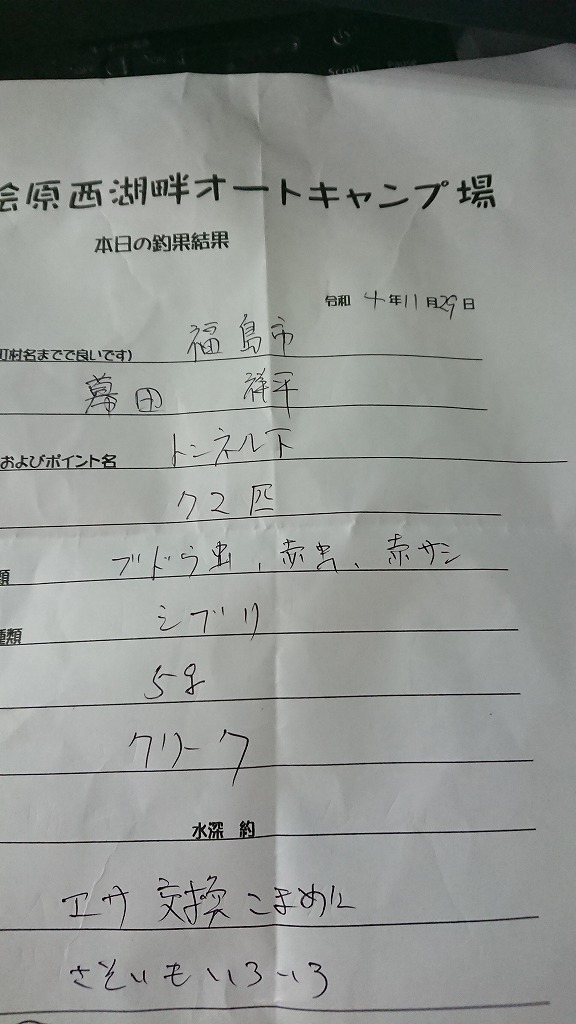 桧原西湖畔オートキャンプ場
本日の釣果結果
令和 4年11月29日
町村名までで良いです) 福島市
幕田 祥平
およびポイント名 トンネル下
72匹
類 ブドウ虫、赤虫、赤サシ
種類 シブリ
5g
クリーク
水深 約
エサ 交換こまめに
さそいもいろいろ